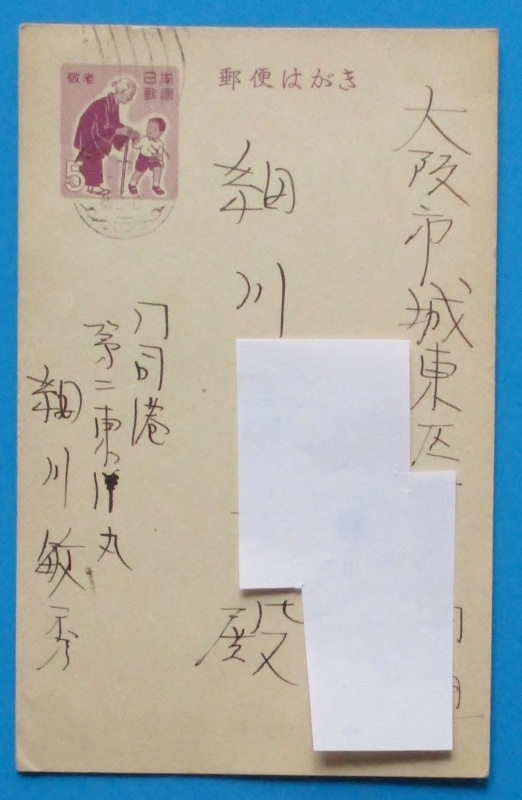 敬老
日本郵便
5
郵便はがき
大阪市城東区
細川
殿
門司港
第二東洋丸
細川敏秀